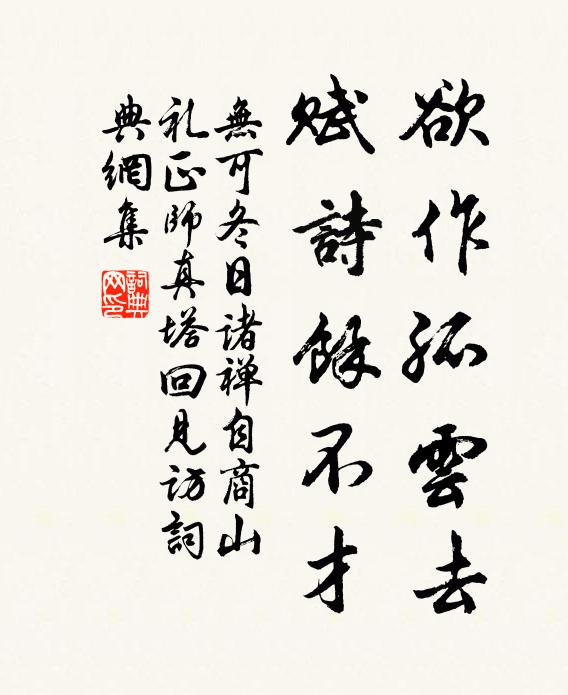 欲作孤雲去
賦詩餘不才
無可冬日諸禅自商山
礼正師真塔回見訪詞
典網集
詞典网印